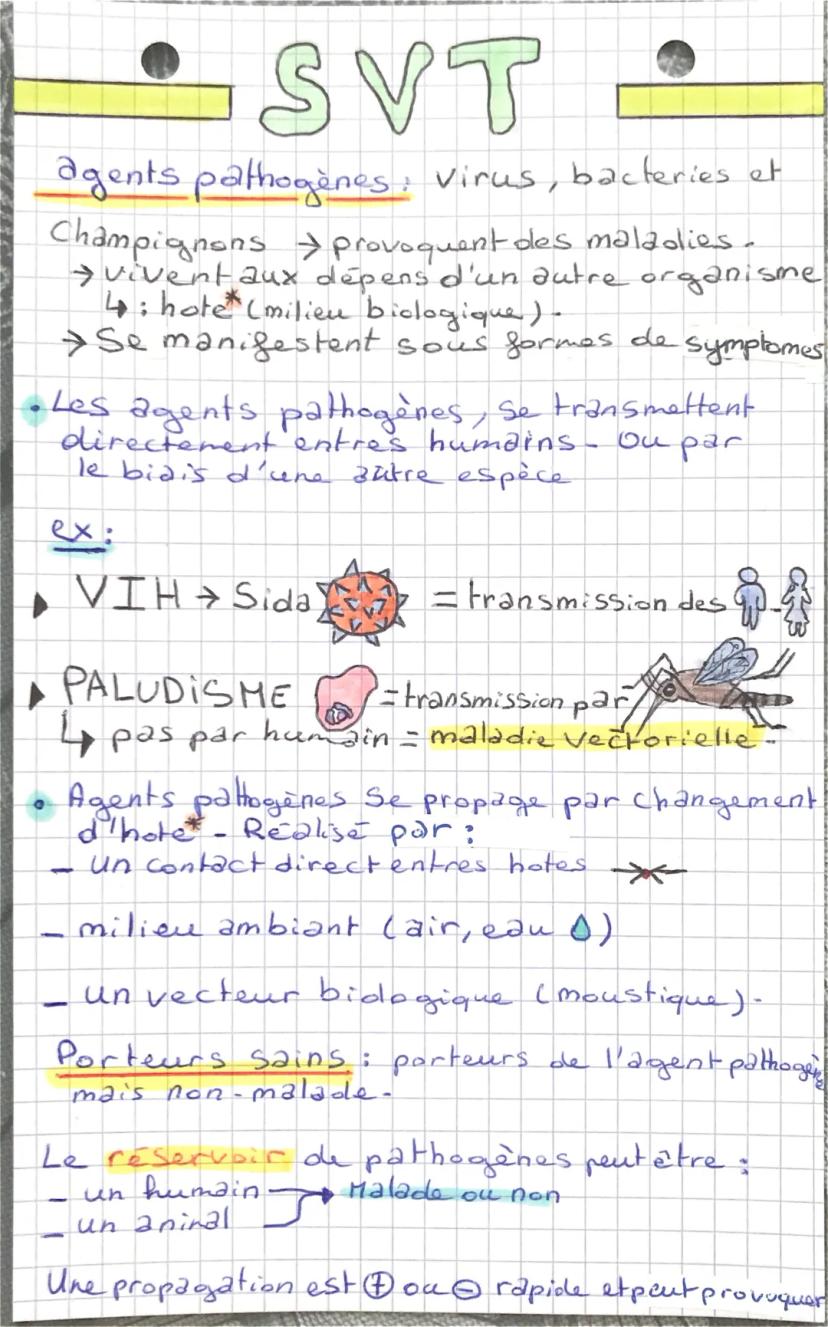 SVT
agents pathogènes : virus, bacteries et
Champignons → provoquent des maladies.
→ vivent aux dépens d'un autre organisme
↳ : hote* (milieu biologique).
→ Se manifestent sous formes de symptomes
• Les agents pathogènes, se transmettent
directement entres humains. Ou par
le biais d'une autre espèce
ex :
▸ VIH → Sida = transmission des
▸ PALUDiSME = transmission par
↳ pas par humain = maladie vectorielle.
• Agents pathogènes se propage par changement
d'hote* - Réalisé par :
- un contact direct entres hotes
- milieu ambiant (air, eau)
- un vecteur biologique (moustique).
Porteurs sains : porteurs de l'agent pathogène
mais non-malade.
Le réservoir de pathogènes peut être :
- un humain → Malade ou non
- un animal
Une propagation est + ou - rapide et peut provoquer